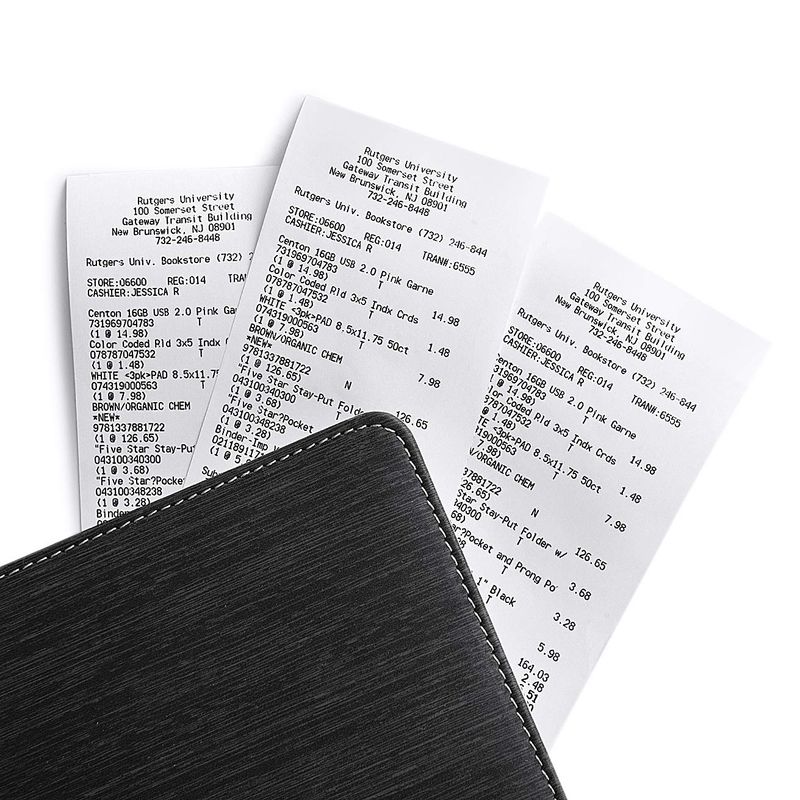 Rutgers University
100 Somerset Street
Gateway Transit Building
New Brunswick, NJ 08901
732-246-8448
Rutgers Univ. Bookstore (732) 2
STORE:06600 REG:014 TRAN
CASHIER:JESSICA R
Centon 16GB USB 2.0 Pink Garn
731969704783 T
(1 @ 14.98)
Color Coded Rld 3x5 Indx
078787047532 T
(1 @ 1.48)
WHITE <3pk>PAD 8.5x11.75
074319000563 T
(1 @ 7.98)
BROWN/ORGANIC CHEM
*NEW*
9781337881722
(1 @ 126.65)
"Five Star Stay-Put
043100340300
(1 @ 3.68)
"Five Star?Pocket
043100348238
(1 @ 3.28)
Binder
Rutgers University
100 Somerset Street
Gateway Transit Building
New Brunswick, NJ 08901
732-246-8448
Rutgers Univ. Bookstore (732) 246-844
STORE:06600 REG:014 TRAN#:6555
CASHIER:JESSICA R
Centon 16GB USB 2.0 Pink Garne
731969704783 T 14.98
(1 @ 14.98)
Color Coded Rld 3x5 Indx Crds
078787047532 T 1.48
(1 @ 1.48)
WHITE <3pk>PAD 8.5x11.75 50ct
074319000563 T 7.98
(1 @ 7.98)
BROWN/ORGANIC CHEM
*NEW*
9781337881722 N 126.65
(1 @ 126.65)
"Five Star Stay-Put Folde
043100340300
(1 @ 3.68)
"Five Star?Pocket
043100348238
(1 @ 3.28)
Binder-Imp
(1 @ 5
Sub
Rutgers University
100 Somerset Street
Gateway Transit Building
New Brunswick, NJ 08901
732-246-8448
Rutgers Univ. Bookstore (732) 246-844
STORE:06600 REG:014 TRAN#:6555
CASHIER:JESSICA R
enton 16GB USB 2.0 Pink Garne
31969704783 T 14.98
@ 14.98)
lor Coded Rld 3x5 Indx Crds
8787047532 T 1.48
@ 1.48)
TE <3pk>PAD 8.5x11.75 50ct
19000563 T 7.98
7.98)
/ORGANIC CHEM
37881722 N 126.65
26.65)
Star Stay-Put Folder w/
40300 T 3.68
68)
ar?Pocket and Prong Po
T 3.28
1" Black
T 5.98
164.03
2.48
.51